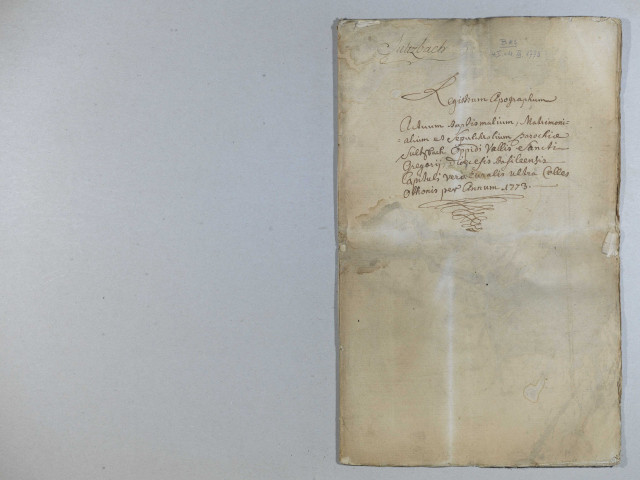 Sultzbach
Registrum Apographum
Actuum Baptismalium, Matrimoni-
alium et Sepulchralium parochiæ
Sultzbach Oppidi Vallis Sancti
Gregorij Diœcesis Basileensis
Capituli vero ruralis ultra Colles
Othonis per Annum 1773.